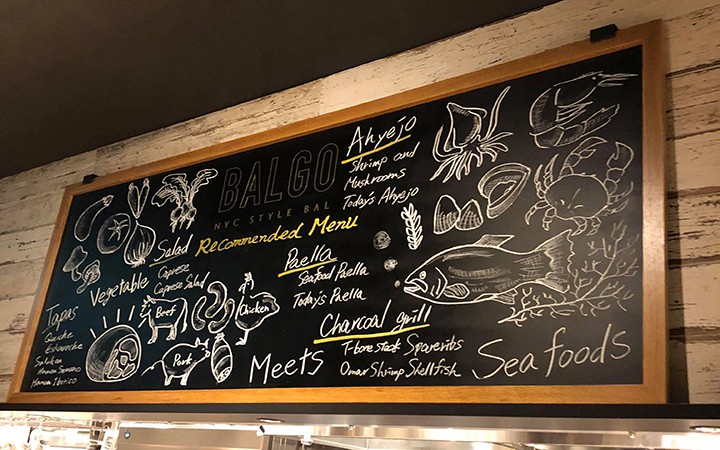 BALGO
NYC STYLE BAL
Recommended Menu
Salad
Caprese
Caprese Salad
Vegetable
Tapas
Quiche
Hamon Serrano
Hamon Iberico
Beef
Chicken
Pork
Meets
Ahyejo
Shrimp and
Mushrooms
Today's Ahyejo
Paella
Seafood Paella
Today's Paella
Charcoal grill
T-bone steak Spareribs
Omar Shrimp Shellfish
Sea foods